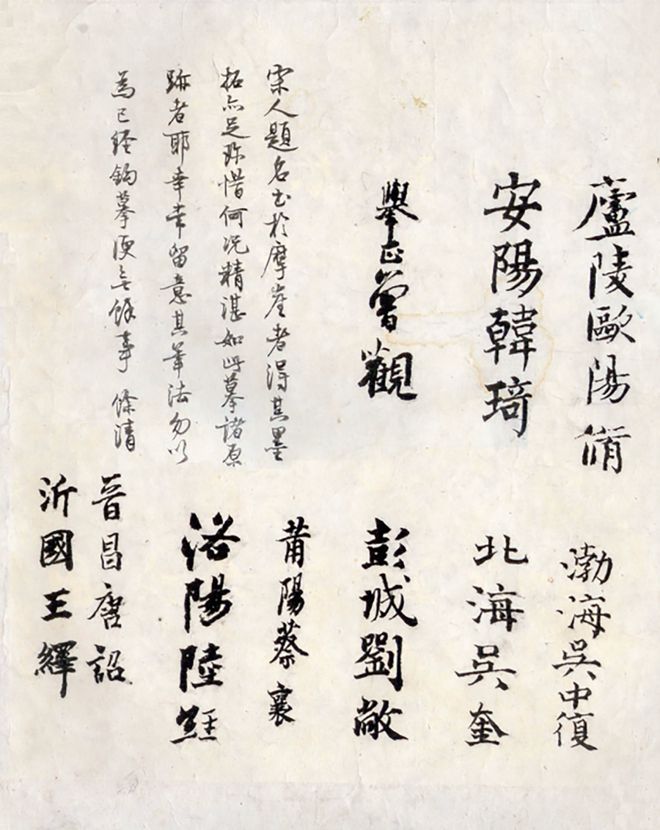 廬陵歐陽脩
安陽韓琦
舉正曾觀
渤海吳中復
北海吳奎
彭城劉敞
莆陽蔡襄
洛陽陸經
晉昌唐詔
沂國王繹
宋人題名書於摩崖者得其墨
拓亦足珍惜何況精湛如此摹諸原
跡者耶幸常留意其筆法勿以
為已經鈎摹便無餘事 條清